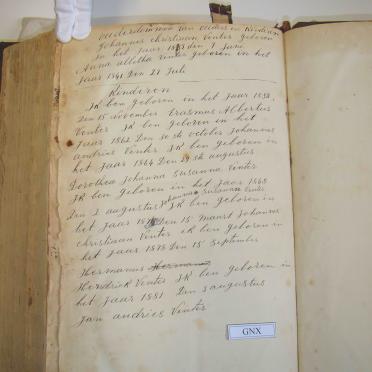 Ouderdom van Ouders en Kinderen
Johannes christiaan Venter geboren
in het Jaar den 1 June
Anna alletha venter geboren in het
Jaar 1841 Den 21 Juli
Kinderen
Ik ben geboren in het Jaar 1858
Den 15 november Erasmus Albertus
Venter Ik ben geboren in het
Jaar 1862 Den october Johannes
andries Venter Ik ben geboren in
het Jaar 1864 Den augustus
Dorothea Johanna Susanna Venter
Ik ben geboren in het Jaar 1868
Den 2 augustus Johanna Susanna Venter
Ik ben geboren in
het Jaar Den 15 Maart Johannes
christiaan Venter ik ben geboren in
het Jaar 1878 Den 15 September
Hermanus
Hendrick Venter Ik ben geboren in
het Jaar 1881 Den 3 augustus
Jan andries Venter
GNX